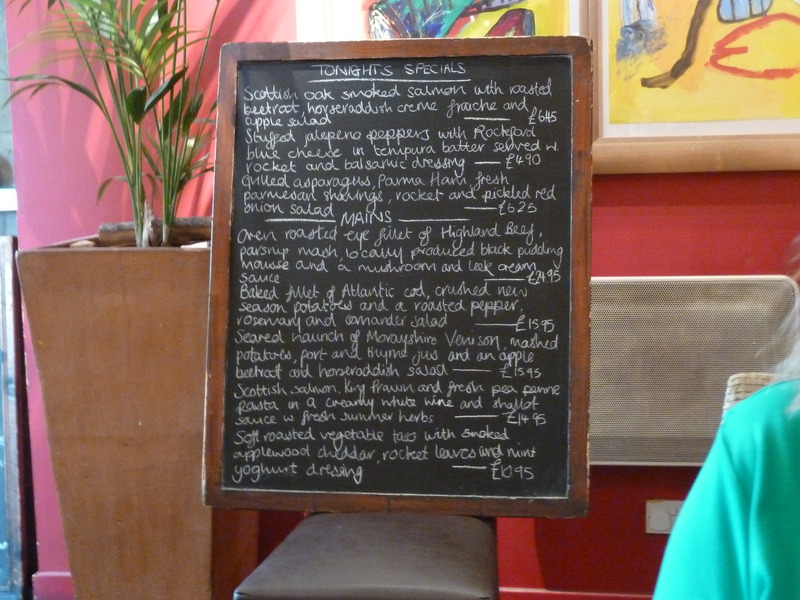 TONIGHTS SPECIALS
Scottish oak smoked salmon with roasted
beetroot, horseraddish creme fraiche and
apple salad — £6.45
Stuffed jalepeno peppers with Rockford
blue cheese in tempura batter served w.
rocket and balsamic dressing — £4.90
Grilled asparagus, Parma Ham, fresh
parmesan shavings, rocket and pickled red
onion salad — £6.25
MAINS
Oven roasted eye fillet of Highland Beef,
parsnip mash, locally produced black pudding
mousse and a mushroom and leek cream
sauce — £24.95
Baked fillet of Atlantic cod, crushed new
season potatoes and a roasted pepper,
rosemary and coriander salad — £15.95
Seared haunch of Morayshire Venison, mashed
potatoes, port and thyme jus and an apple
beetroot and horseraddish salad — £15.95
Scottish Salmon, King Prawn and fresh pea penne
pasta in a creamy white wine and shallot
sauce w fresh summer herbs — £14.95
Soft roasted vegetable taco with smoked
applewood cheddar, rocket leaves and mint
yoghurt dressing — £10.95